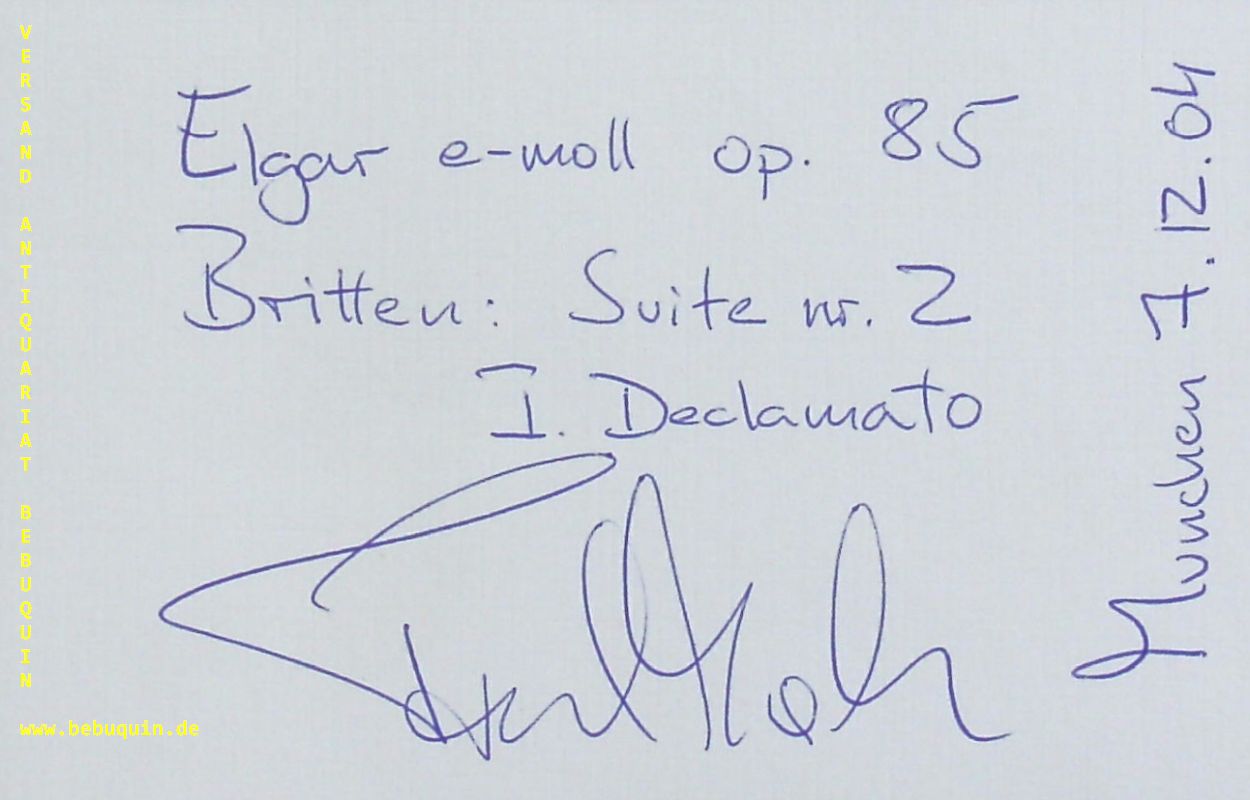 VERSAND ANTIQUARIAT BEBUQUIN
Elgar e-moll op. 85
Britten: Suite nr. 2
I. Declamato
München 7.12.04
www.bebuquin.de